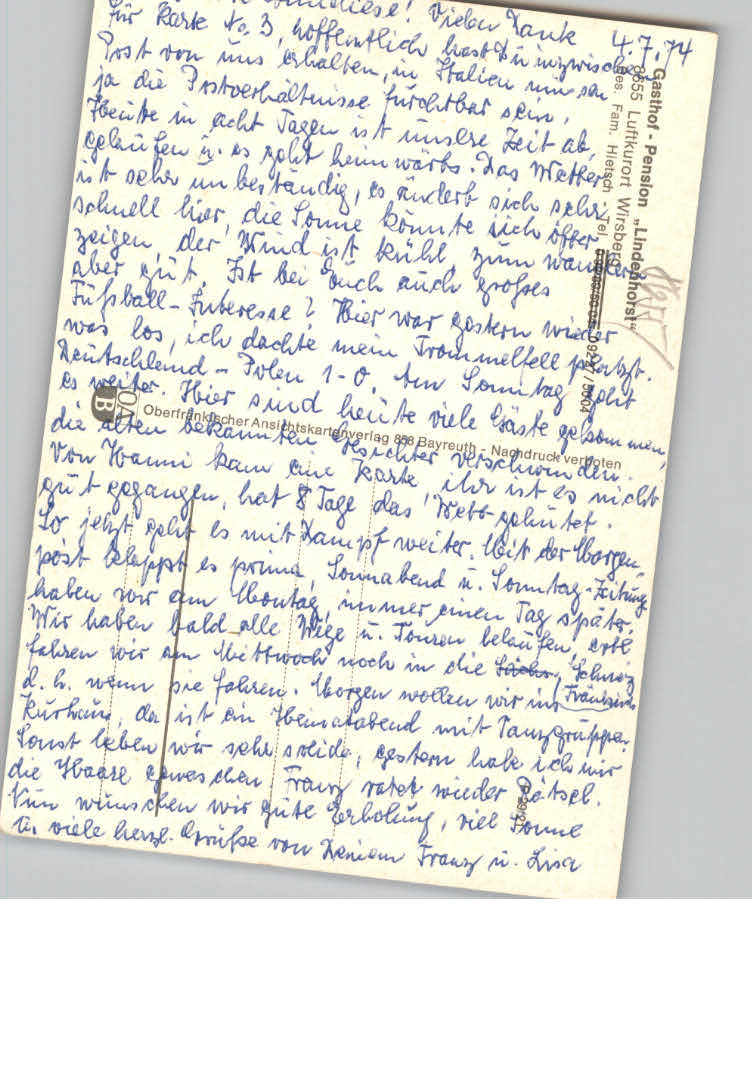 4.7.74
liese! Vielen Dank
für Karte No. 3, hoffentlich hast Du inzwischen
Post von uns erhalten, in Italien müssen
ja die Postverhältnisse furchtbar sein,
Heute in acht Tagen ist unsere Zeit ab,
gelaufen u. es geht heimwärts. Das Wetter
ist sehr unbeständig, es ändert sich sehr
schnell hier, die Sonne könnte sich öfter
zeigen, der Wind ist kühl, zum wandern
aber gut. Ist bei Euch auch großes
Fußball-Interesse? Hier war gestern wieder
was los, ich dachte mein Trommelfell platzt.
Deutschland - Polen 1-0. Am Sonntag geht
es weiter. Hier sind heute viele Gäste gekommen,
die alten bekannten Gesichter verschwinden.
Von Hanni kam eine Karte, ihr ist es nicht
gut gegangen, hat 8 Tage das Bett gehütet.
So jetzt geht es mit Dampf weiter. Mit der Morgen,
post klappt es prima, Sonnabend u. Sonntag-Zeitung
haben wir am Montag, immer einen Tag später.
Wir haben bald alle Wege u. Touren belaufen, evtl
fahren wir am Mittwoch noch in die Schweiz
(Fränkische
d. h. wenn sie fahren. Morgen wollen wir ins
Kurhaus, da ist ein Heimatabend mit Tanzgruppe.
Sonst leben wir sehr solide, gestern habe ich mir
die Haare gewaschen, Franz ratet wieder Rätsel.
Nun wünschen wir gute Erholung, viel Sonne
u. viele herzl. Grüße von Deinem Franz u. Lisa
Gasthof - Pension „Lindenhorst"
8655 Luftkurort Wirsberg
Bes. Fam. Hietsch Tel. 09227/5004
Oberfränkischer Ansichtskartenverlag 858 Bayreuth - Nachdruck verboten